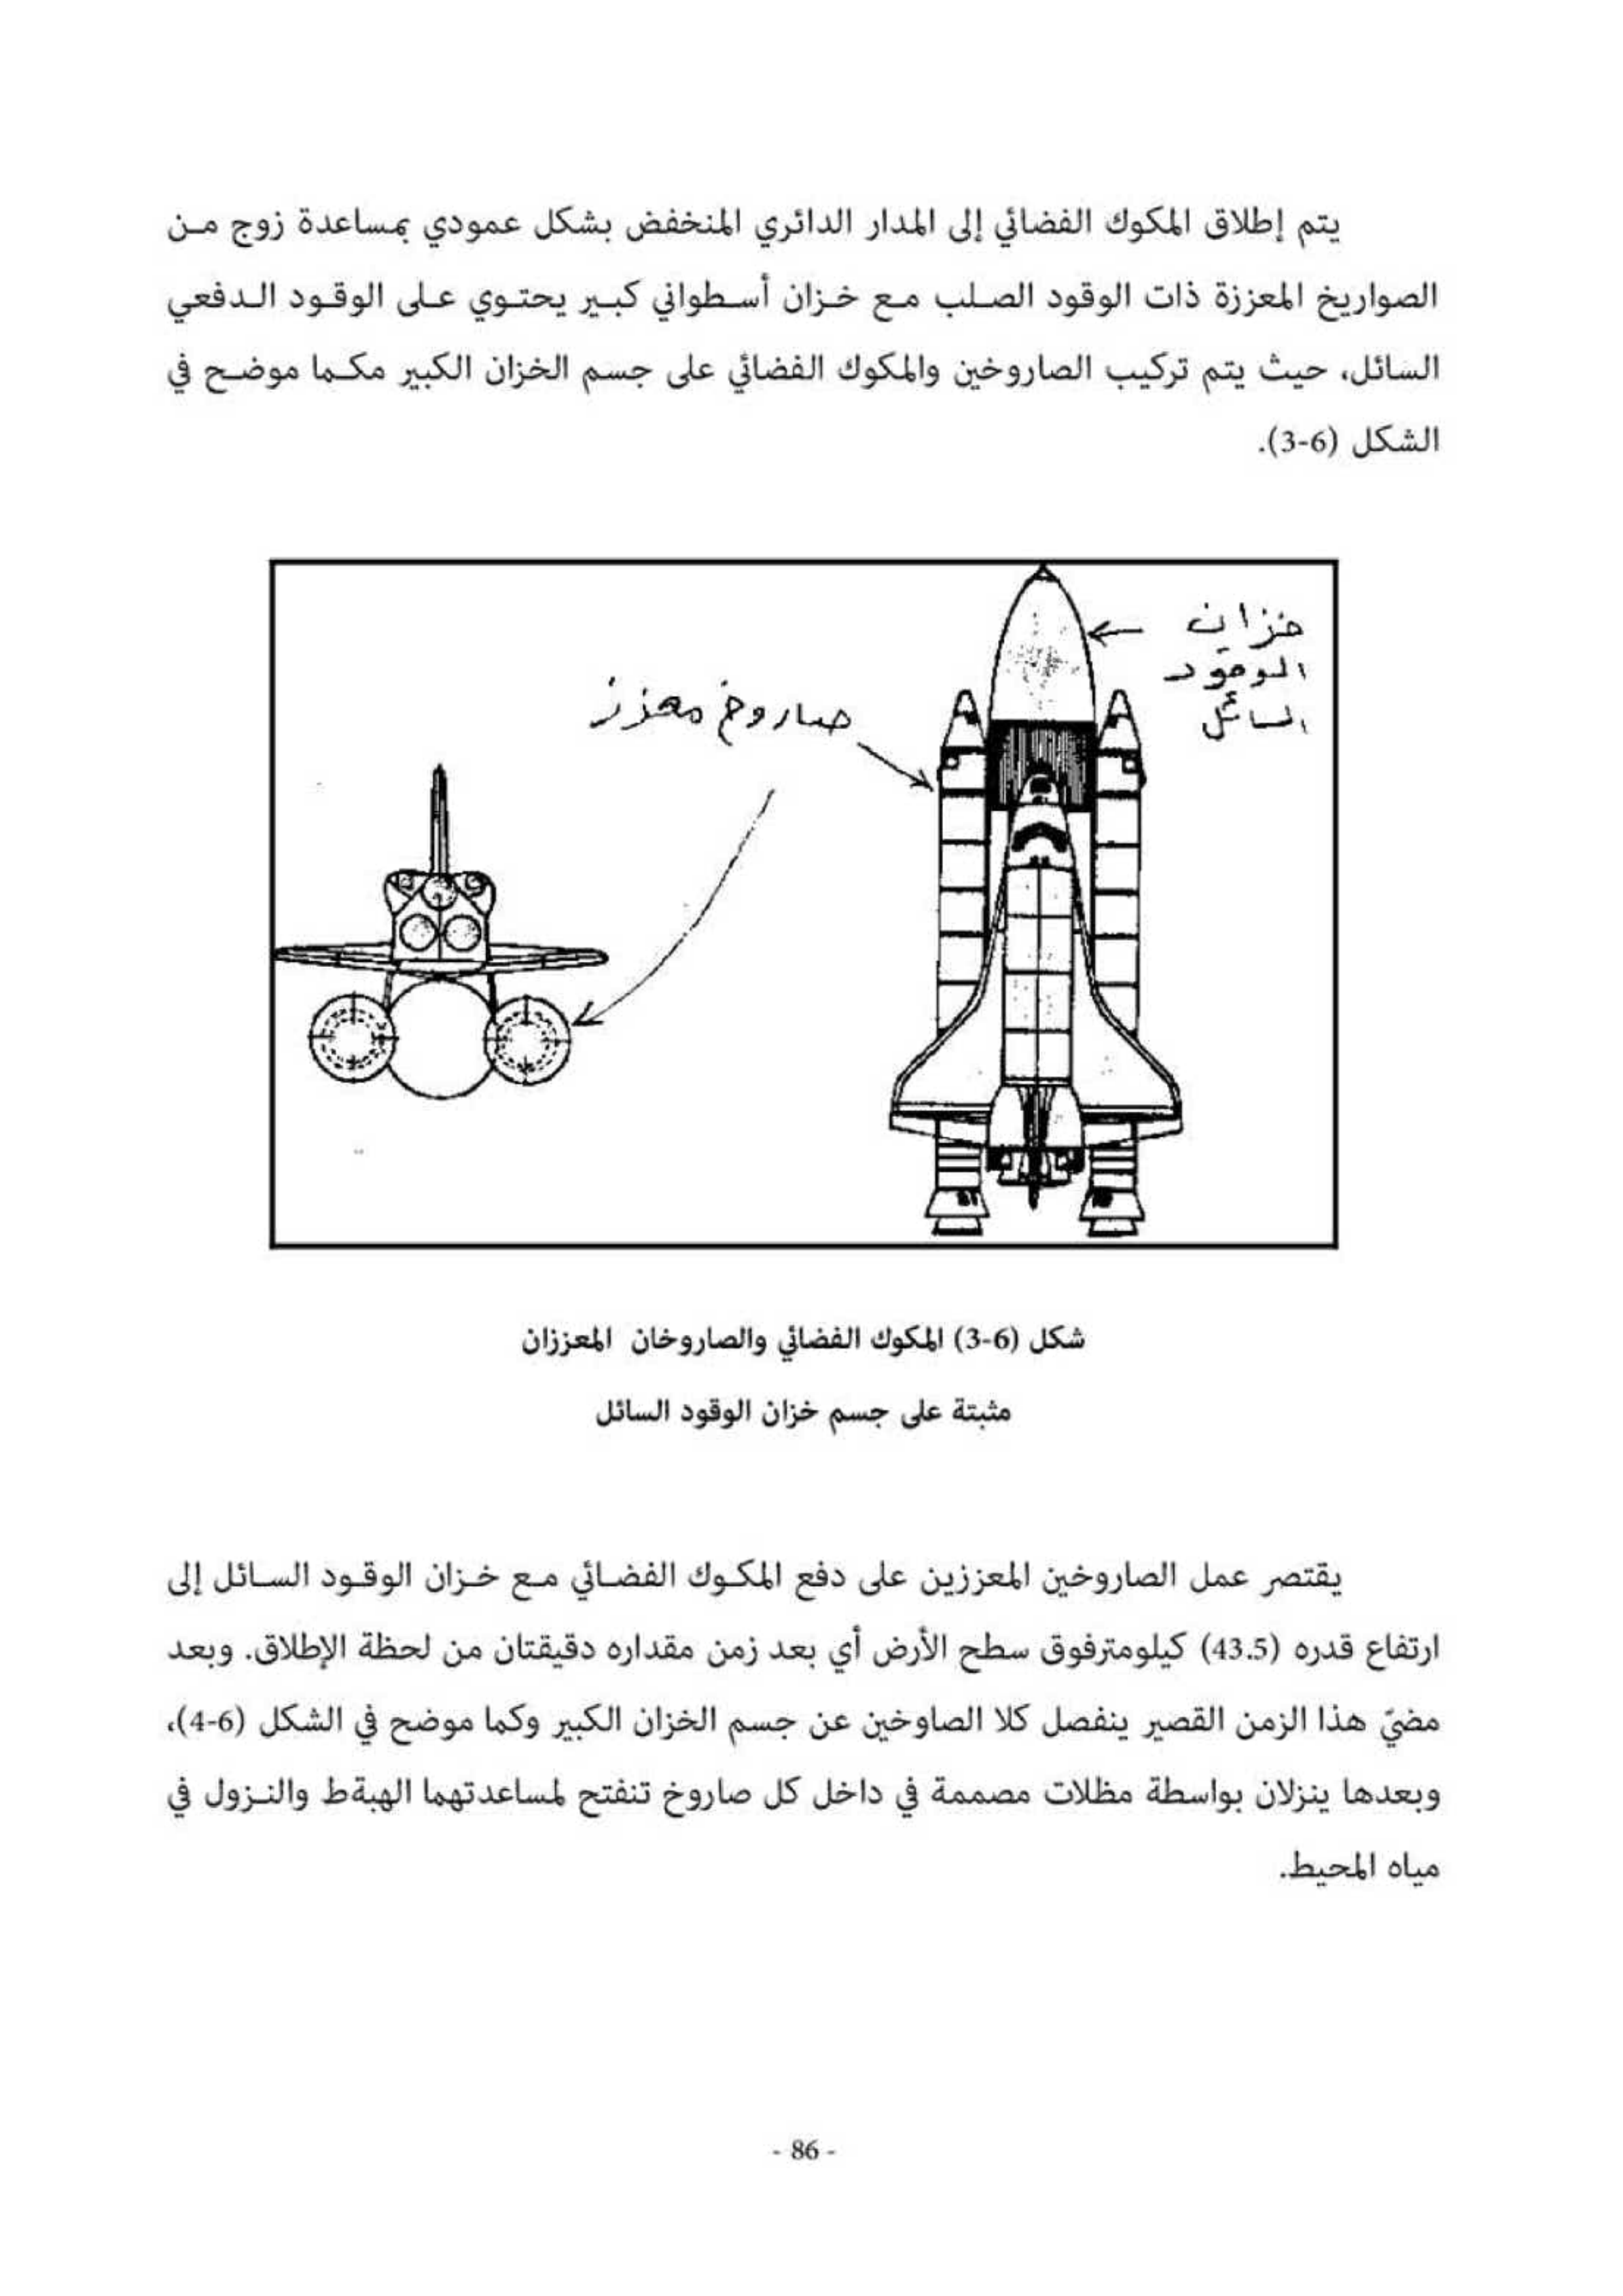 يتم إطلاق المكوك الفضائي إلى المدار الدائري المنخفض بشكل عمودي بمساعدة زوج من
الصواريخ المعززة ذات الوقود الصلب مع خزان أسطواني كبير يحتوي على الوقود الدفعي
السائل، حيث يتم تركيب الصاروخين والمكوك الفضائي على جسم الخزان الكبير مكما موضح في
الشكل (6-3).
خزان
الوقود
السائل
صاروخ معزز
شكل (6-3) المكوك الفضائي والصاروخان المعززان
مثبتة على جسم خزان الوقود السائل
يقتصر عمل الصاروخين المعززين على دفع المكوك الفضائي مع خزان الوقود السائل إلى
ارتفاع قدره (43.5) كيلومترفوق سطح الأرض أي بعد زمن مقداره دقيقتان من لحظة الإطلاق. وبعد
مضيّ هذا الزمن القصير ينفصل كلا الصاوخين عن جسم الخزان الكبير وكما موضح في الشكل (6-4)،
وبعدها ينزلان بواسطة مظلات مصممة في داخل كل صاروخ تنفتح لمساعدتهما الهبةط والنزول في
مياه المحيط.
- 86 -